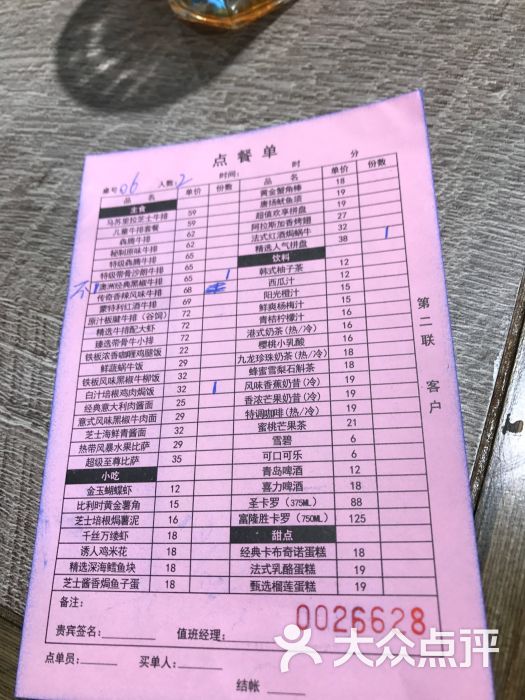 点餐单
桌号 06 人数 2 时间: 时 分
品名 单价 份数
主食
马苏里拉芝士牛排 59
儿童牛排套餐 59
犇腾牛排 62
秘制原味牛排 65
特级犇腾牛排 65
特级带骨沙朗牛排 65 1
不 澳洲经典黑椒牛排 65
传奇香辣风味牛排 68
蒙特利红酒牛排 69
原汁板腱牛排(谷饲) 72
精选牛排配大虾 72
臻选带骨牛小排 72
铁板浓香咖喱鸡腿饭 22
鲜蔬焗牛饭 29
铁板风味黑椒牛柳饭 32
白汁培根鸡肉焗饭 32 1
经典意大利肉酱面 25
意式风味黑椒牛肉面 29
芝士海鲜青酱面 32
热带风暴水果比萨 29
超级至尊比萨 35
小吃
金玉蝴蝶虾 12
比利时黄金薯角 15
芝士培根焗薯泥 16
千丝万缕虾 18
诱人鸡米花 18
精选深海鳕鱼块 18
芝士酱香焗鱼子蛋 18
品名 单价 份数
黄金蟹角棒 18
唐扬鱿鱼须 19
超值欢享拼盘 27
阿拉斯加香烤翅 27
法式红酒焗蜗牛 32
精选人气拼盘 38 1
饮料
韩式柚子茶 12
西瓜汁 12
阳光橙汁 15
鲜爽杨梅汁 15
青桔柠檬汁 16
港式奶茶(热/冷) 16
樱桃小乳酸 16
九龙珍珠奶茶(热/冷) 18
蜂蜜雪梨石斛茶 18
风味香蕉奶昔(冷) 19
香浓芒果奶昔(冷) 19
特调咖啡(热/冷) 19
蜜桃芒果茶 21
雪碧 6
可口可乐 6
青岛啤酒 12
喜力啤酒 18
圣卡罗(375ML) 88
富隆胜卡罗(750ML) 125
甜点
经典卡布奇诺蛋糕 18
法式乳酪蛋糕 19
甄选榴莲蛋糕 19
第二联 客户
备注:
0026628
贵宾签名: 值班经理:
点单员: 买单人:
结帐
大众点评